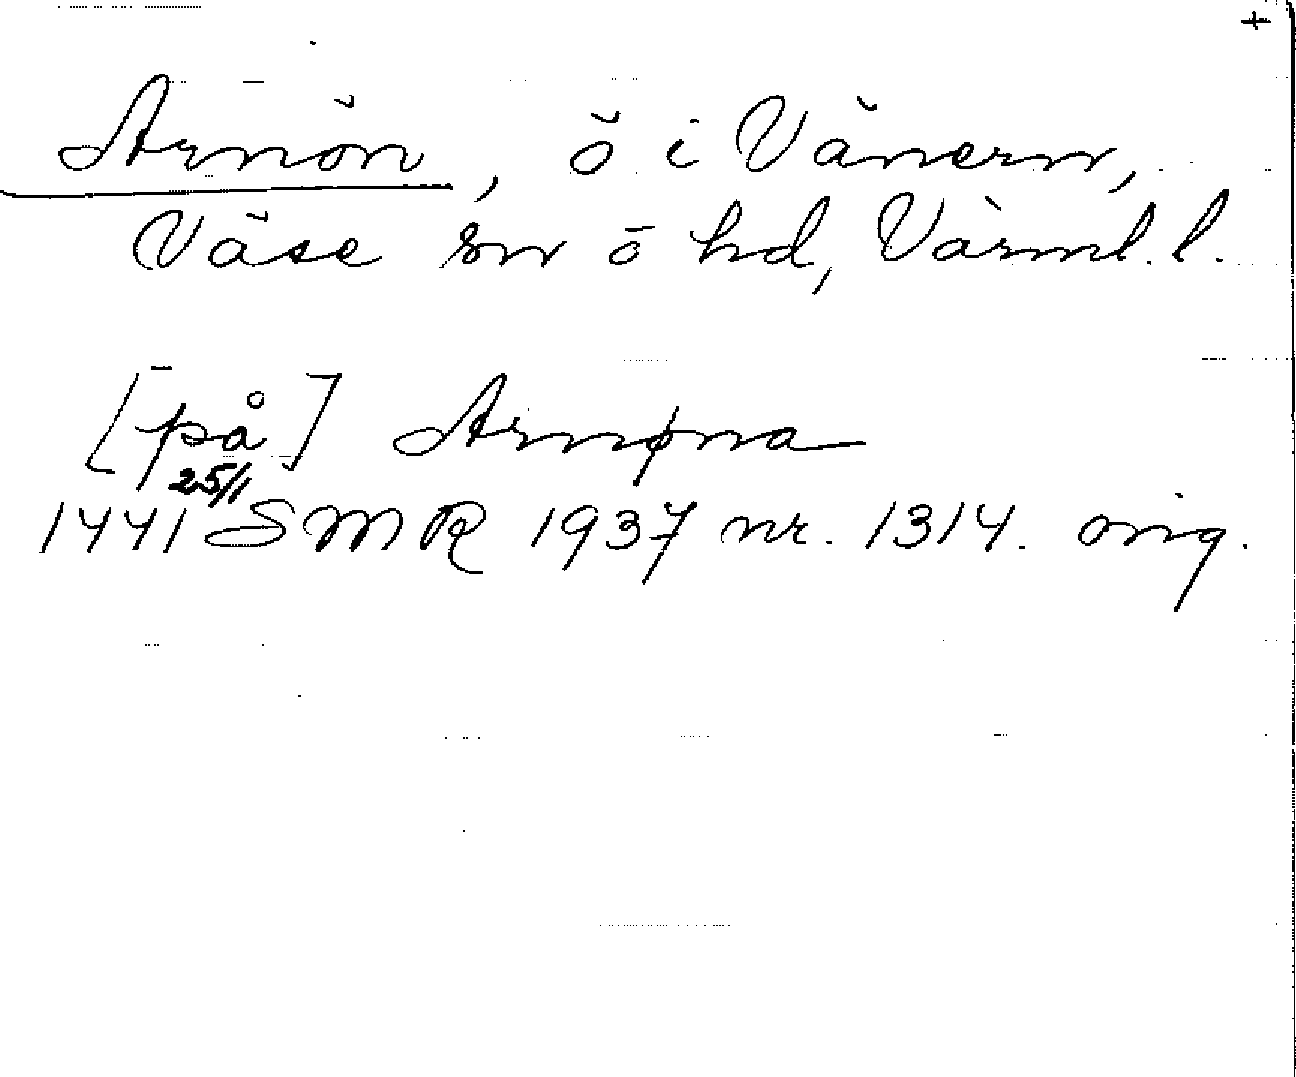 +
Arnön, ö i Vänern,
Väse sn o hd, Värml. l.
[på] Arnøna
25/1
1441 SMR 1937 nr. 1314. orig.